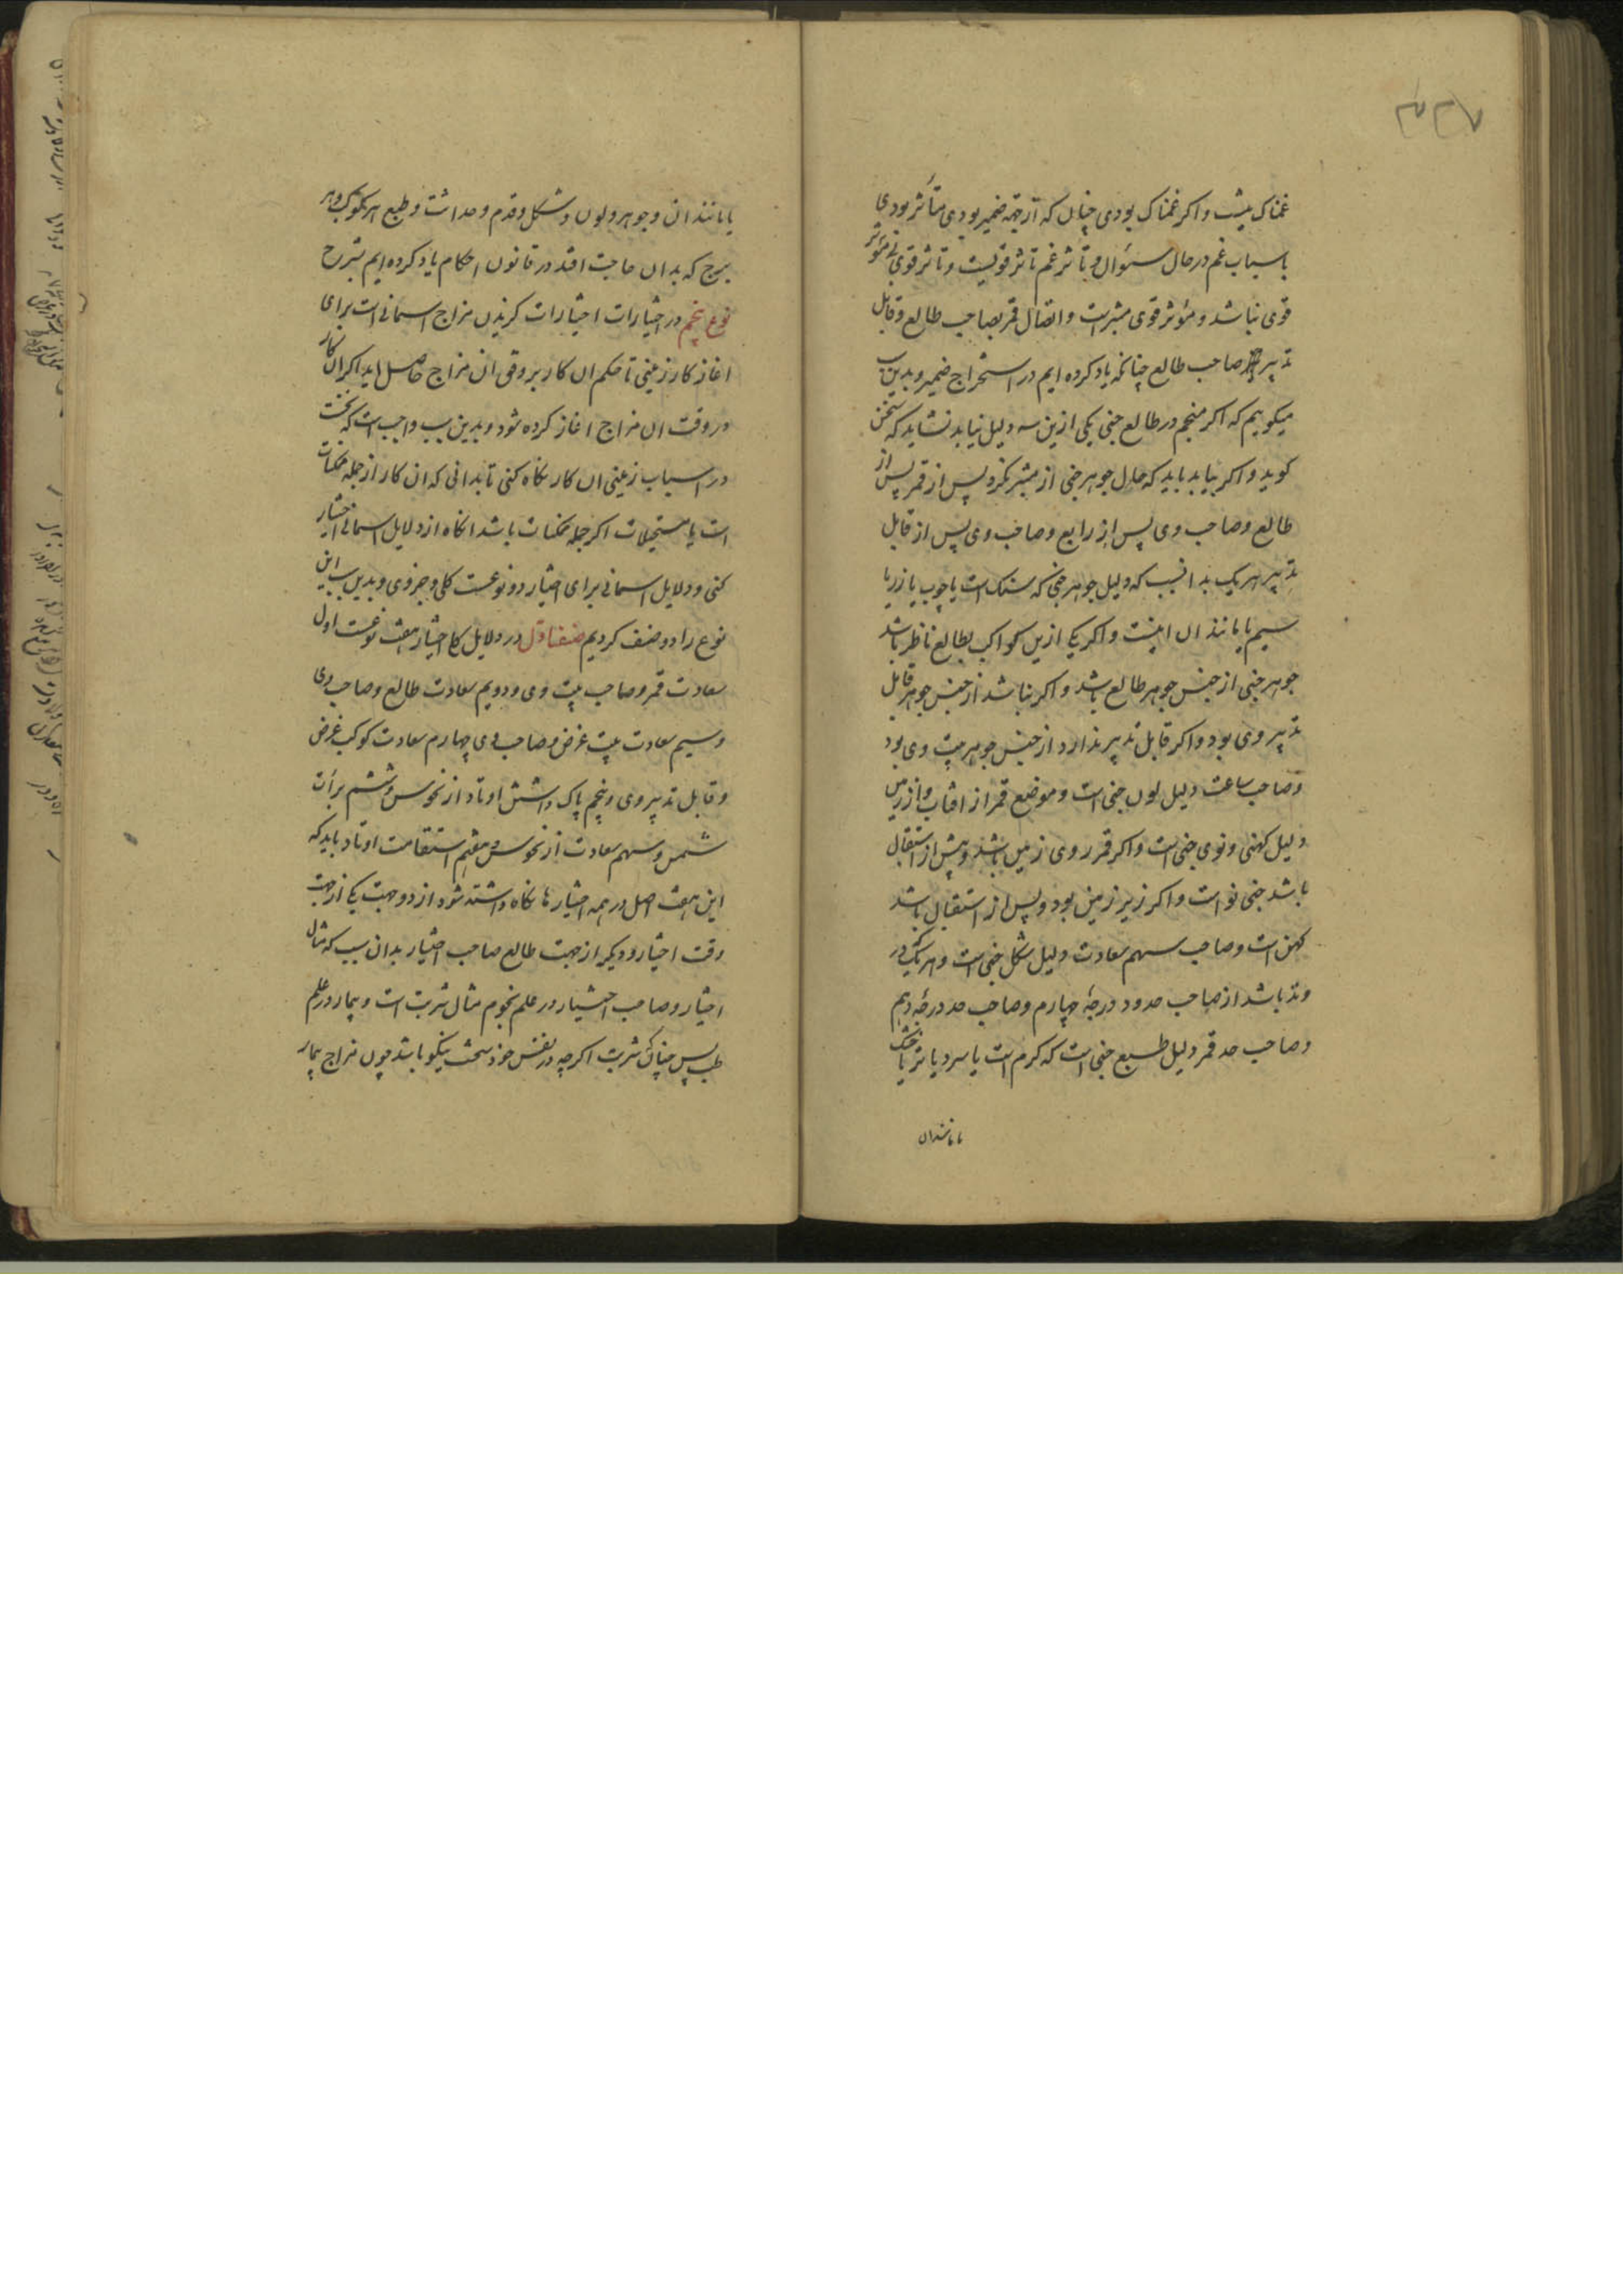 غمناک نیست و اکر غمناک بودی چنان که از جهة ضمیر بودی متأثر بودی
باسباب غم در حال سئوال و تأثر غم تاثر قویست و تاثر قوی بی مؤثر
قوی نباشد و مؤثر قوی مبتز است و اتصال قمر بصاحب طالع و قابل
تدبیر صاحب طالع چنانکه یاد کرده ایم در استخراج ضمیر و بدین سبب
میکوییم که اکر منجم در طالع خبی یکی ازین سه دلیل نیابد نشاید که سخن
کوید و اکر بیابد باید که حال جوهر خبی از مبتز نکرد پس از قمر پس از
طالع و صاحب وی پس از رابع و صاحب وی پس از قابل
تدبیر هر یک بدانسبب که دلیل جوهر خبی که سنک است یا چوب یا زر یا
سیم یا مانند ان اینست و اکر یکی ازین کواکب بطالع ناظر باشد
جوهر خبی از جنس جوهر طالع باشد و اکر نباشد از جنس جوهر قابل
تدبیر وی بود و اکر قابل تدبیر ندارد از جنس جوهر بیت وی بود
و صاحب ساعت دلیل لون خبی است و موضع قمر از افتاب و از زمین
دلیل کهنی و نوی خبی است و اکر قمر روی زمین باشد و پیش از استقبال
باشد خبی نو است و اکر زیر زمین بود و پس از استقبال باشد
کهن است و صاحب سهم سعادت دلیل شکل خبی است و هر یک در
وتد باشد از صاحب حدود درجهٔ چهارم و صاحب حد درجهٔ دهم
و صاحب حد قمر دلیل طبع خبی است که کرم است یا سرد یا تر یا خشک
یا مانند ان
یا مانند ان و جوهر و لون و شکل و قدم و حداثت و طبع هر کوکب و هر
برج که بدان حاجت افتد در قانون احکام یاد کرده ایم بشرح
نوع پنجم در اختیارات اختیارات کزیدن مزاج اسمانی است برای
اغاز کار زمینی تا حکم ان کار بر وفق ان مزاج حاصل اید اکر ان کار
در وقت ان مزاج اغاز کرده شود و بدین سبب واجب است که نخست
در اسباب زمینی ان کار نکاه کنی تا بدانی که ان کار از جمله ممکنات
است یا مستحیلات اکر جمله ممکنات باشد انکاه از دلایل اسمانی اختیار
کنی و دلایل اسمانی برای اختیار دو نوعست کلی و جزوی و بدین سبب این
نوع را دو صنف کردیم صنف اول در دلایل کلی اختیار هفت نوعست اول
سعادت قمر و صاحب بیت وی و دویم سعادت طالع و صاحب وی
و سیم سعادت بیت غرض و صاحب وی چهارم سعادت کوکب غرض
و قابل تدبیر وی و پنجم پاک داشتن اوتاد از نحوس و ششم برأت
شمس و سهم سعادت از نحوس هفتم استقامت اوتاد باید که
این هفت اصل در همه اختیارها نکاه داشته شود از دو جهت یکی از جهت
وقت اختیار و دیکر از جهت طالع صاحب اختیار بدان سبب که مثال
اختیار و صاحب اختیار در علم نجوم مثال شربت است و بیمار در علم
طب پس چنانک شربت اکرچه در نفس خود سخت نیکو باشد چون مزاج بیمار